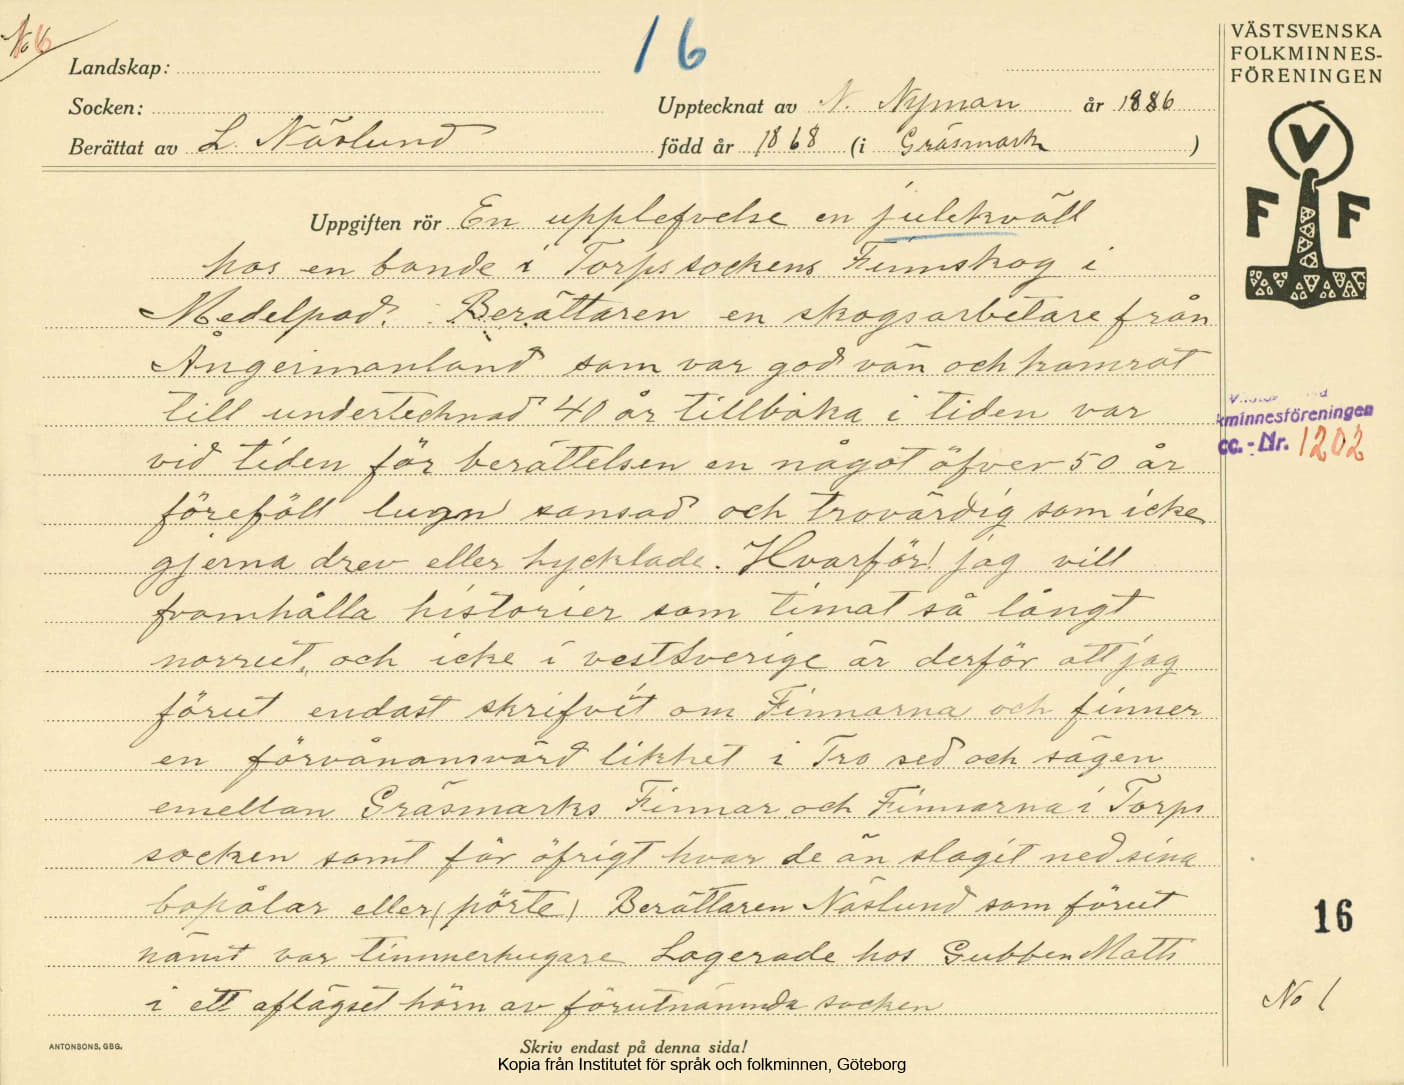 No 6
16
VÄSTSVENSKA
FOLKMINNES-
FÖRENINGEN
V
F F
Landskap:
Socken:
Upptecknat av N. Nyman år 1886
Berättat av L. Näslund
född år 1868 (i Gräsmark)
Uppgiften rör En upplefvelse en julekväll
hos en bonde i Torps sockens Finnskog i
Medelpad. Berättaren en skogsarbetare från
Ångermanland som var god vän och kamrat
till undertecknad 40 år tillbaka i tiden var
vid tiden för berättelsen en något öfver 50 år
föreföll lugn sansad och trovärdig som icke
gjerna drev eller hycklade. Hvarför! jag vill
framhålla historier som timat så långt
norrut, och icke i vestSverige är derför att jag
förut endast skrifvit om Finnarna och finner
en förvånansvärd likhet i Tro sed och sägen
emellan Gräsmarks Finnar och Finnarna i Torps
socken samt för öfrigt hvar de än slagit ned sina
bopålar eller (pörte) Berättaren Näslund som förut
nämt var timmerhugare Logerade hos Gubben Matts
i ett aflägset hörn av förutnämnda socken
kminnesföreningen
cc. - Nr. 1202
16
No 1
ANTONSONS, GBG.
Skriv endast på denna sida!
Kopia från Institutet för språk och folkminnen, Göteborg